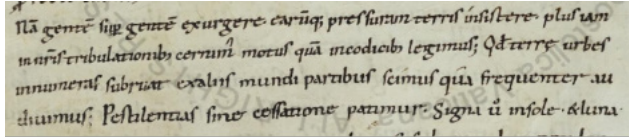 Nā gentē sup̄ gentē exurgere. earūq; pressuram terris insistere. plus iam
in nr̄is tribulationib; cernim̄ motus quā in codicib; legimus; Qd̄ terrę urbes
innumeras subruat ex aliis mundi partibus scimus quā frequenter au
diuimus; Pestilentias sine cessatione patimur. Signa ū in sole. & luna